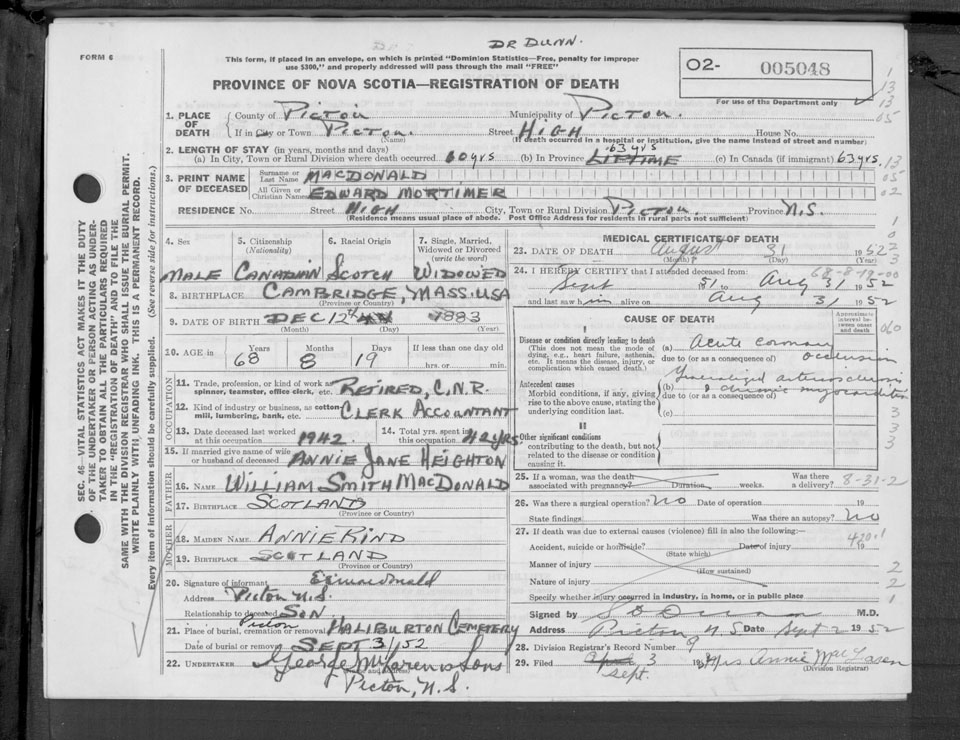 DR DUNN.
FORM 6
This form, if placed in an envelope, on which is printed "Dominion Statistics—Free, penalty for improper
use $300," and properly addressed will pass through the mail "FREE"
PROVINCE OF NOVA SCOTIA—REGISTRATION OF DEATH
02- 005048
For use of the Department only
1. PLACE OF DEATH
County of Pictou Municipality of Pictou.
If in City or Town Pictou. (Name) Street HIGH House No.
(If death occurred in a hospital or institution, give the name instead of street and number)
2. LENGTH OF STAY (in years, months and days)
(a) In City, Town or Rural Division where death occurred 60 yrs (b) In Province LIFTIME 63 yrs (c) In Canada (if immigrant) 63 yrs.
3. PRINT NAME OF DECEASED
Surname or Last Name MACDONALD
All Given or Christian Names EDWARD MORTIMER
RESIDENCE No. Street HIGH City, Town or Rural Division Pictou. Province N.S.
(Residence means usual place of abode. Post Office Address for residents in rural parts not sufficient)
4. Sex MALE
5. Citizenship (Nationality) CANADIAN
6. Racial Origin SCOTCH
7. Single, Married, Widowed or Divorced (write the word) WIDOWED
8. BIRTHPLACE CAMBRIDGE, MASS. USA
(Province or Country)
9. DATE OF BIRTH DEC 12th 1883
(Month) (Day) (Year)
10. AGE in Years 68 Months 8 Days 19 If less than one day old hrs. or min.
OCCUPATION
11. Trade, profession, or kind of work as spinner, teamster, office clerk, etc. RETIRED, C.N.R.
12. Kind of industry or business, as cotton mill, lumbering, bank, etc. CLERK ACCOUNTANT
13. Date deceased last worked at this occupation 1942.
14. Total yrs. spent in this occupation 42 YRS.
15. If married give name of wife or husband of deceased ANNIE JANE HEIGHTON
FATHER
16. NAME WILLIAM SMITH MACDONALD
17. BIRTHPLACE SCOTLAND
(Province or Country)
MOTHER
18. MAIDEN NAME ANNIE RIND
19. BIRTHPLACE SCOTLAND
(Province or Country)
20. Signature of informant
Address Pictou N.S.
Relationship to deceased SON
21. Place of burial, cremation or removal Pictou HALIBURTON CEMETERY
Date of burial or removal SEPT 3/52
22. UNDERTAKER George McLaren & Sons
Pictou, N.S.
SEC. 46—VITAL STATISTICS ACT MAKES IT THE DUTY
OF THE UNDERTAKER OR PERSON ACTING AS UNDER-
TAKER TO OBTAIN ALL THE PARTICULARS REQUIRED
IN THE "REGISTRATION OF DEATH" AND TO FILE THE
SAME WITH THE DIVISION REGISTRAR WHO SHALL ISSUE THE BURIAL PERMIT.
WRITE PLAINLY WITH UNFADING INK. THIS IS A PERMANENT RECORD.
Every item of information should be carefully supplied. (See reverse side for instructions.)
MEDICAL CERTIFICATE OF DEATH
23. DATE OF DEATH August 31 1952
(Month) (Day)
68-8-19-00
24. I HEREBY CERTIFY that I attended deceased from:
Sept 51 to Aug 31 1952
and last saw him alive on Aug 31 1952
CAUSE OF DEATH
Approximate interval between onset and death
Disease or condition directly leading to death
(This does not mean the mode of dying, e.g., heart failure, asthenia, etc. It means the disease, injury, or complication which caused death.)
(a) Acute coronary occlusion
due to (or as a consequence of)
Antecedent causes
Morbid conditions, if any, giving rise to the above cause, stating the underlying condition last.
(b) Generalized arteriosclerosis & chronic myocarditis
due to (or as a consequence of)
(c)
II
Other significant conditions
contributing to the death, but not related to the disease or condition causing it.
25. If a woman, was the death associated with pregnancy? Duration weeks. Was there a delivery? 8-31-2
26. Was there a surgical operation? No Date of operation 19
State findings Was there an autopsy? No
27. If death was due to external causes (violence) fill in also the following:—
420.1
Accident, suicide or homicide? (State which) Date of injury 19
Manner of injury (How sustained)
Nature of injury
Specify whether injury occurred in industry, in home, or in public place
Signed by S D Dunn M.D.
Address Pictou N S Date Sept 2 1952
28. Division Registrar's Record Number 9
29. Filed Sept. 3 19 Mrs Annie MacLaren
(Division Registrar)